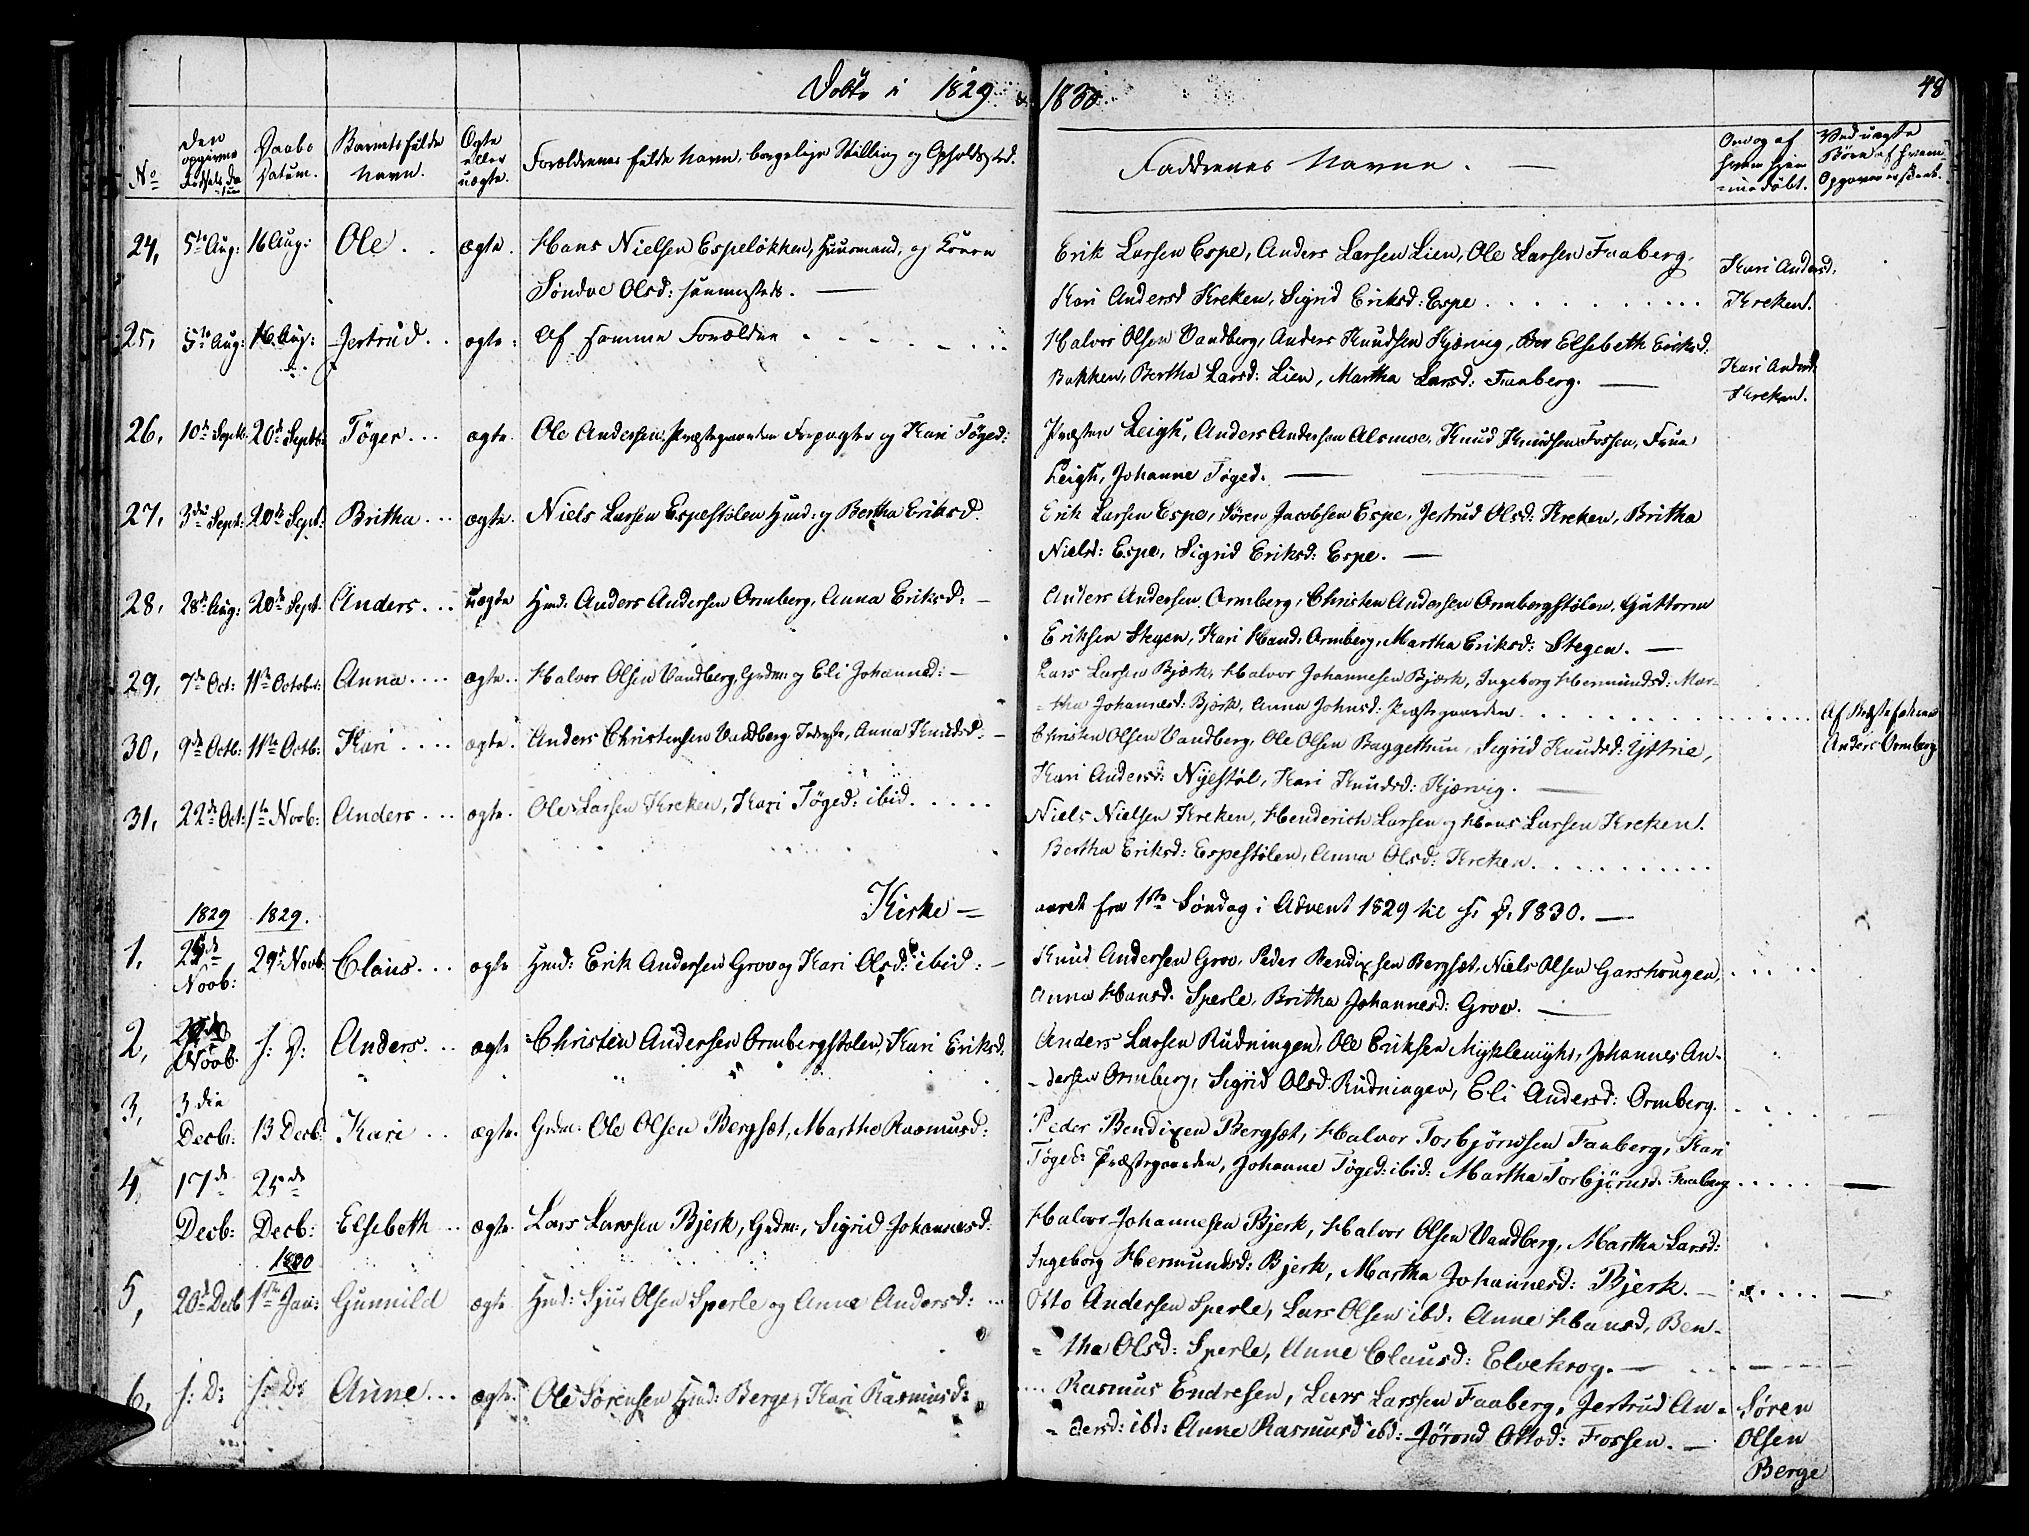 Døbte i 1829 & 1830.
48
No
Den opgivne Fødsels Datum
Daabs Datum.
Barnets fulde Navn.
Ægte eller uægte.
Forældrenes fulde Navn, borgelige Stilling og Opholdssted.
Faddernes Navne. —
Om og af hvem hjemmedøbt.
Ved uægte Børn af hvem Opgaven er skeet.
24, 5te Aug: 16 Aug: Ole . . ægte. Hans Nielsen Espeløkken, Huusmand, og Konen
Søndve Olsd: sammesteds. —
Erik Larsen Espe, Anders Larsen Lien, Ole Larsen Faaberg,
Kari Andersd Kreken, Sigrid Eriksd: Espe . . . . . . . . .
Kari Andersd,
Kreken.
25, 5te Aug: 16 Aug: Jertrud . . ægte: Af samme Forældre - - - - - -
Halvor Olsen Vandberg, Anders Knudsen Kjærvig, Elsebeth Eriksd:
Bakken, Bertha Larsd: Lien, Martha Larsd: Faaberg. —
Kari Andersd
Kreken.
26, 10de Septb: 20de Septb: Tøger . . . ægte. Ole Andersen, Præstegaardens Forpagter og Kari Tøged:
Præsten Leigh, Anders Andersen Alsmoe, Knud Knudsen Fossen, Frue
Leigh, Johanne Tøged. —
27, 3die Sept: 20de Sept: Britha . . . ægte. Niels Larsen Espestølen Hmd: og Bertha Eriksd.
Erik Larsen Espe, Søren Jacobsen Espe, Jertrud Olsd: Kreken, Britha
Nielsd: Espe, Sigrid Eriksd: Espe. —
28, 28de Aug: 20de Sept. Anders . . . uægte Hmd: Anders Andersen Ormberg, Anna Eriksd: —
Anders Andersen Ormberg, Christen Andersen Ormbergstølen, Guttorm
Eriksen Stegen, Kari Hansd: Ormberg, Martha Eriksd: Stegen. —
29, 7de Oct: 11te Octobr: Anna . . . . ægte. . Halvor Olsen Vandberg, Grdm: og Eli Johannesd: —
Lars Larsen Bjærk, Halvor Johannesen Bjærk, Ingeborg Hermundsd: Mar-
-tha Johannesd: Bjørk, Anna Johnsd: Præstegaarden. . . . . . . .
Af Barnefaderen
Anders Ormberg
30, 9de Octb: 11te Octb: Kari . . . . ægte. Anders Christensen Vandberg, Anna Knudsd: —
Christen Olsen Vandberg, Ole Olsen Baggethun, Sigrid Knudsd: Ystrie,
Kari Andersd: Nylstøl, Kari Knudsd: Kjærvig. —
31, 22de Oct: 1te Novb: Anders . . . ægte. Ole Larsen Kreken, Kari Tøged: ibid. . . . .
Niels Nielsen Kreken, Henderich Larsen og Hans Larsen Kreken.
Bertha Eriksd: Espestølen, Anna Olsd: Kreken. . . . . . . . .
Kirke- aaret fra 1ste Søndag i Advent 1829 til s. D. 1830. —
1829 1829.
1, Novb: 29de Novb: Claus . . . ægte Hmd: Erik Andersen Grov og Kari Olsd: ibid: —
Knud Andersen Grov, Peder Bendixsen Bergsæt, Niels Olsen Garshougen, . . . . .
Anna Hansd. Sperle, Britha Johannesd: Grov. —
2, Novb. s: D: Anders. . . ægte Christen Andersen Ormbergstølen, Kari Eriksd.
Anders Larsen Rudningen, Ole Eriksen Myklemyhr, Johannes An-
-dersen Ormberg, Sigrid Olsd: Rudningen, Eli Andersd: Ormberg. . . .
3, 3die Decb: 13 Decb: Kari . . ægte. Grdm: Ole Olsen Bergsæt, Martha Rasmusd:
Peder Bendixen Bergsæt, Halvor Torbjørnsen Faaberg, Kari
Tøged: Præstegaarden, Johanne Tøged: ibid: Martha Torbjørnsd. Faaberg . . . . .
4, 17de Decb: 25de Decb: Elsebeth . . ægte. Lars Larssen Bjerk, Grdm:, Sigrid Johannesd:
Halvor Johannesen Bjerk, Halvor Olsen Vandberg, Martha Larsd:
Ingeborg Hermundsd: Bjerk, Martha Johannesd: Bjerk. —
1830
5, 20de Decb 1ste Jan: Gunnild ægte. Hmd: Sjur Olsen Sperle og Anne Andersd: . . .
Otto Andersen Sperle, Lars Olsen ibd. Anne Hansd, Ben-
-tha Olsd: Sperle, Anne Clausd: Elvekrog. —
6, s: D: s: D: Anne . . . ægte. Ole Sørensen Hmd: Berge, Kari Rasmusd:
Rasmus Endresen, Lars Larssen Faaberg, Jertrud An-
-dersd: ibd: Anne Rasmusd ibd: Jørand Ottod: Fossen. —
Søren
Olsen
Berge